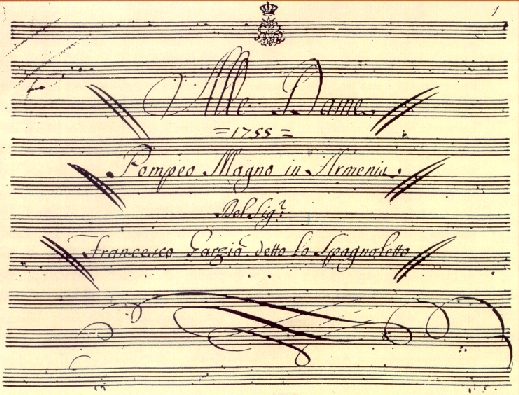 1
Alle Dame
=1755=
Pompeo Magno in Armenia.
Del Sig.r
Francesco Garzia detto lo Spagnoletto